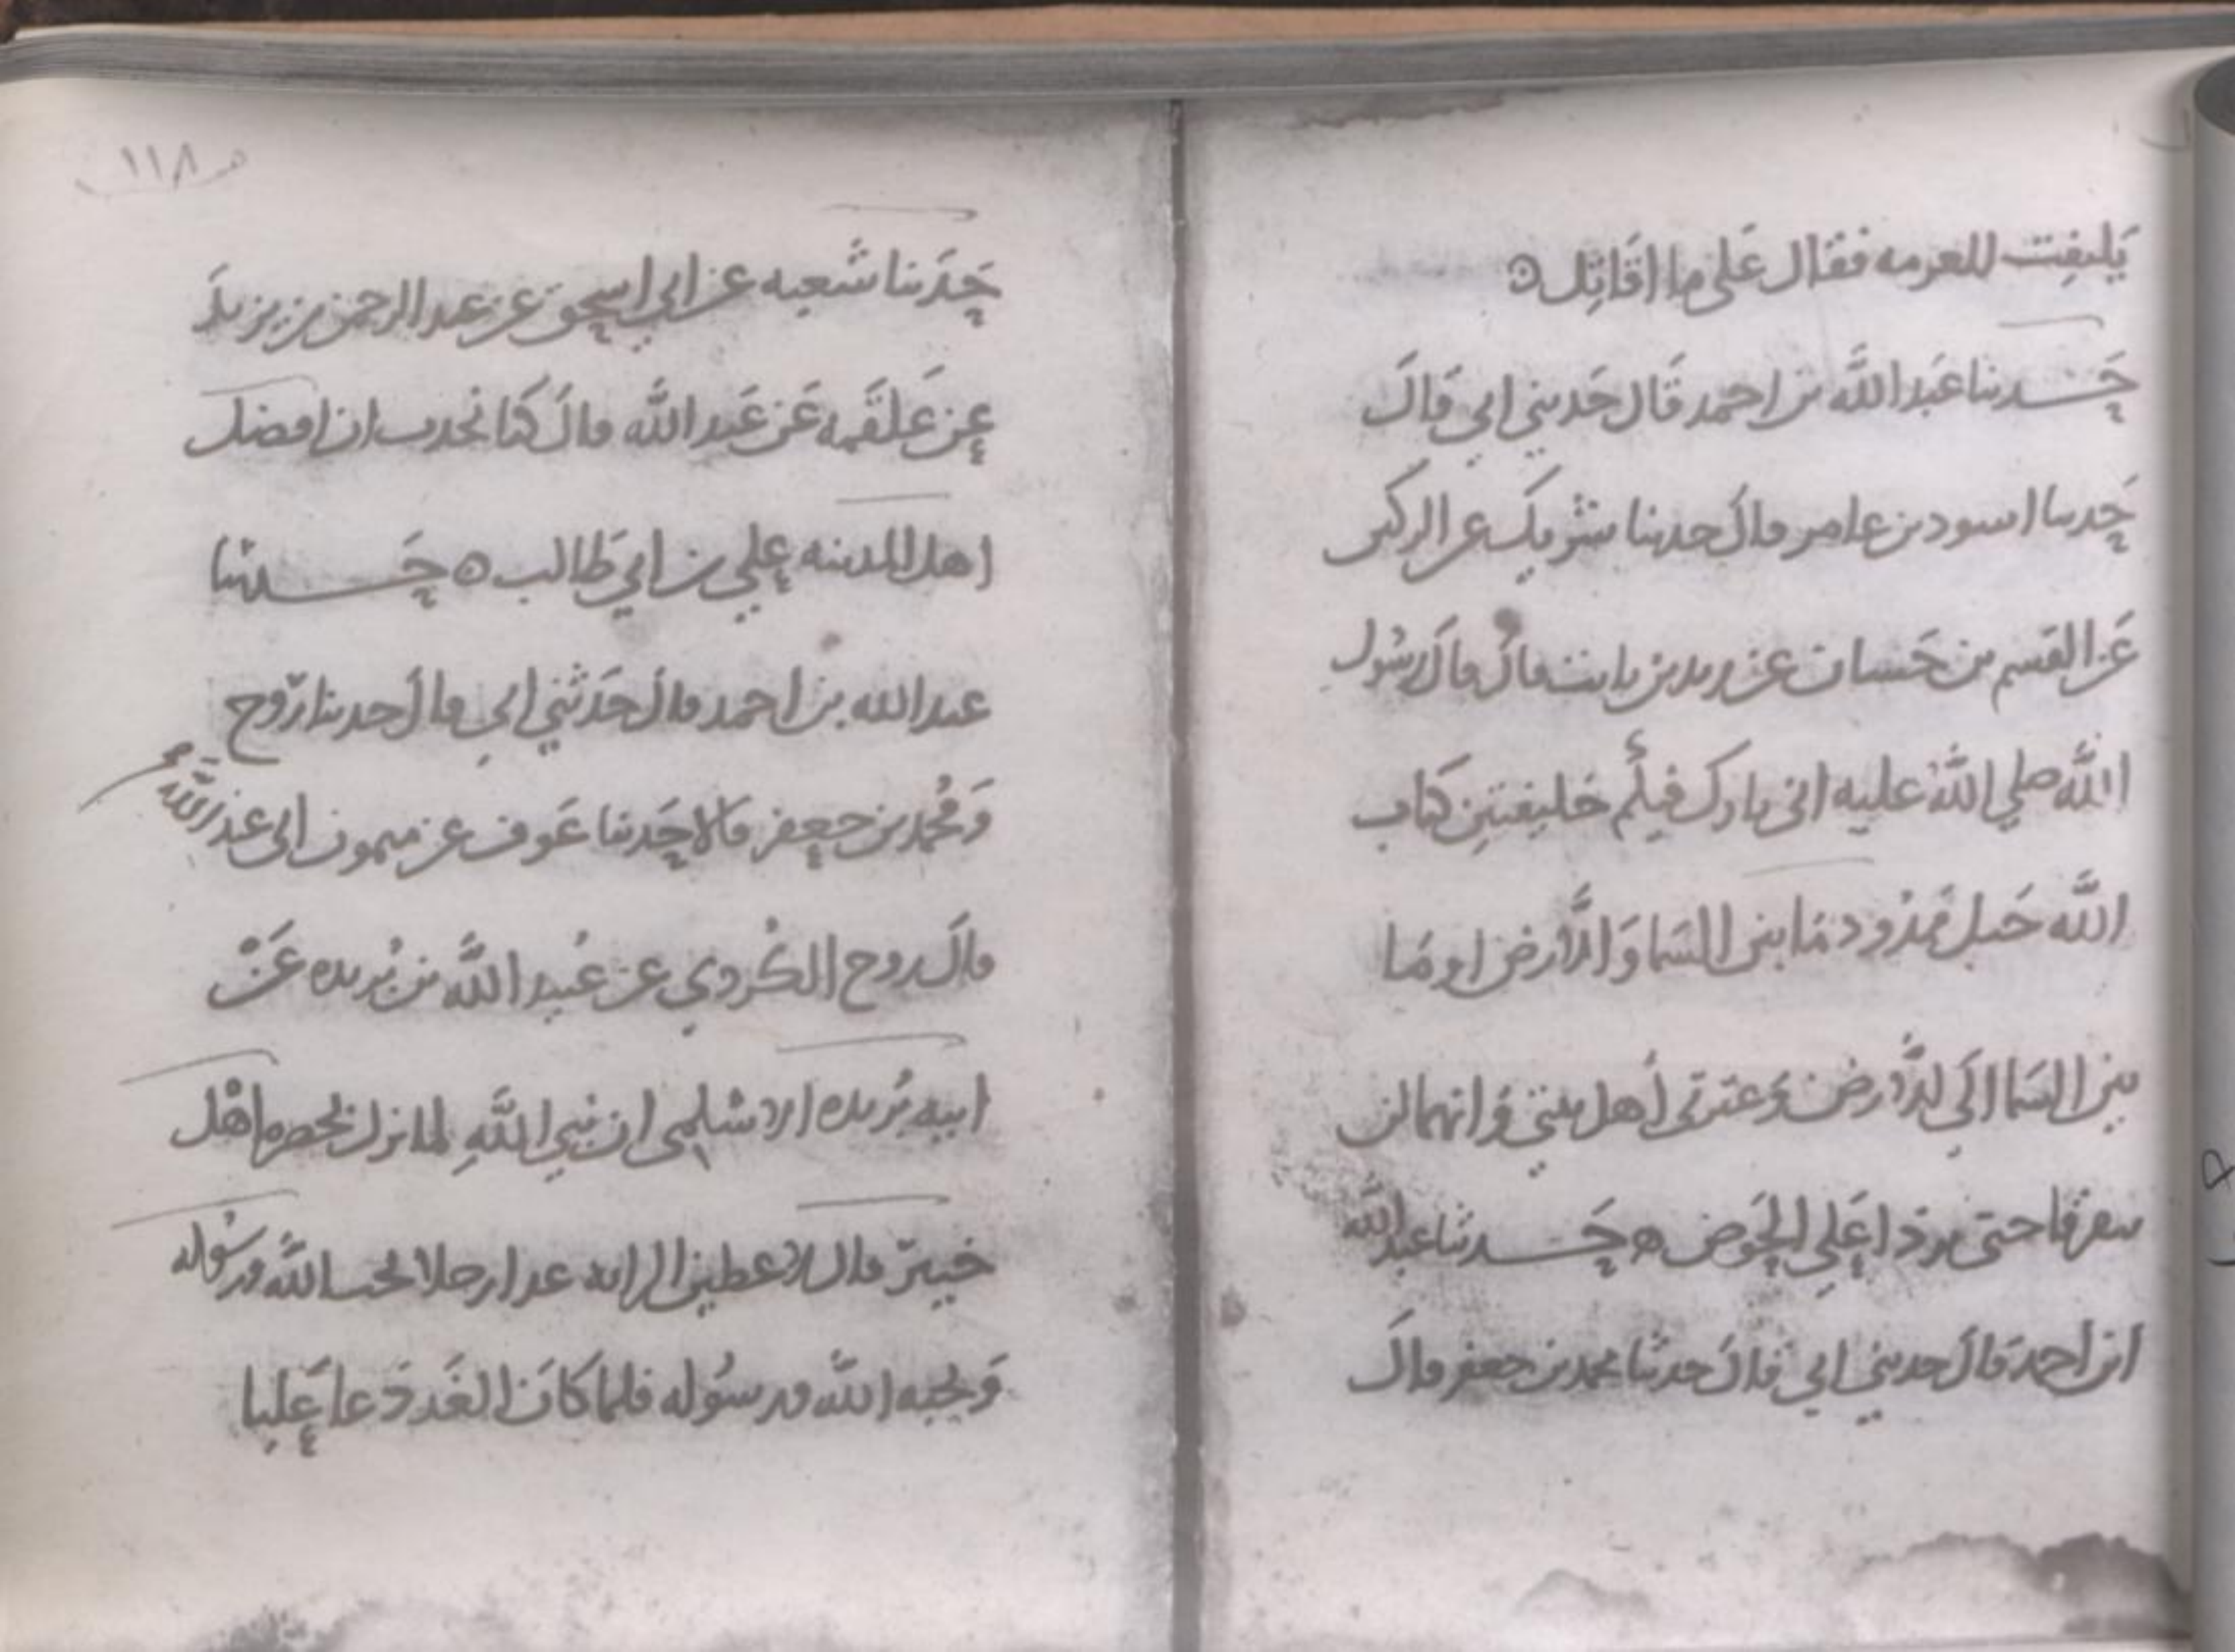 يلتفت للعزمه فقال على ما اقاتل ه
حدثنا عبد الله بن احمد قال حدثني ابي قال
حدثنا اسود بن عامر قال حدثنا شريك عن الركين
عن القسم بن حسان عن زيد بن ثابت قال قال رسول
الله صلي الله عليه اني تارك فيكم خليفتين كتاب
الله حبل ممدود ما بين السما والارض او ما
بين السما الي الارض وعترتي أهل بيتي وانهما لن
يتفرقا حتى يردا علي الحوض ه حدثنا عبد الله
ابن احمد قال حدثني ابي قال حدثنا محمد بن جعفر قال
١١٨
حدثنا شعبه عن ابي اسحق عن عبد الرحمن بن يزيد
عن علقمه عن عبد الله قال كنا نحدث ان افضل
اهل المدينه علي بن ابي طالب ه حدثنا
عبد الله بن احمد قال حدثني ابي قال حدثنا روح
ومحمد بن جعفر قالا حدثنا عوف عن ميمون ابي عبد الله
قال روح الكردي عن عبد الله بن بريده عن
ابيه بريده الاسلمي ان نبي الله لما نزل بحصره اهل
خيبر قال لاعطين الرايه غدا رجلا يحب الله ورسوله
ويحبه الله ورسوله فلما كان الغد دعا عليا